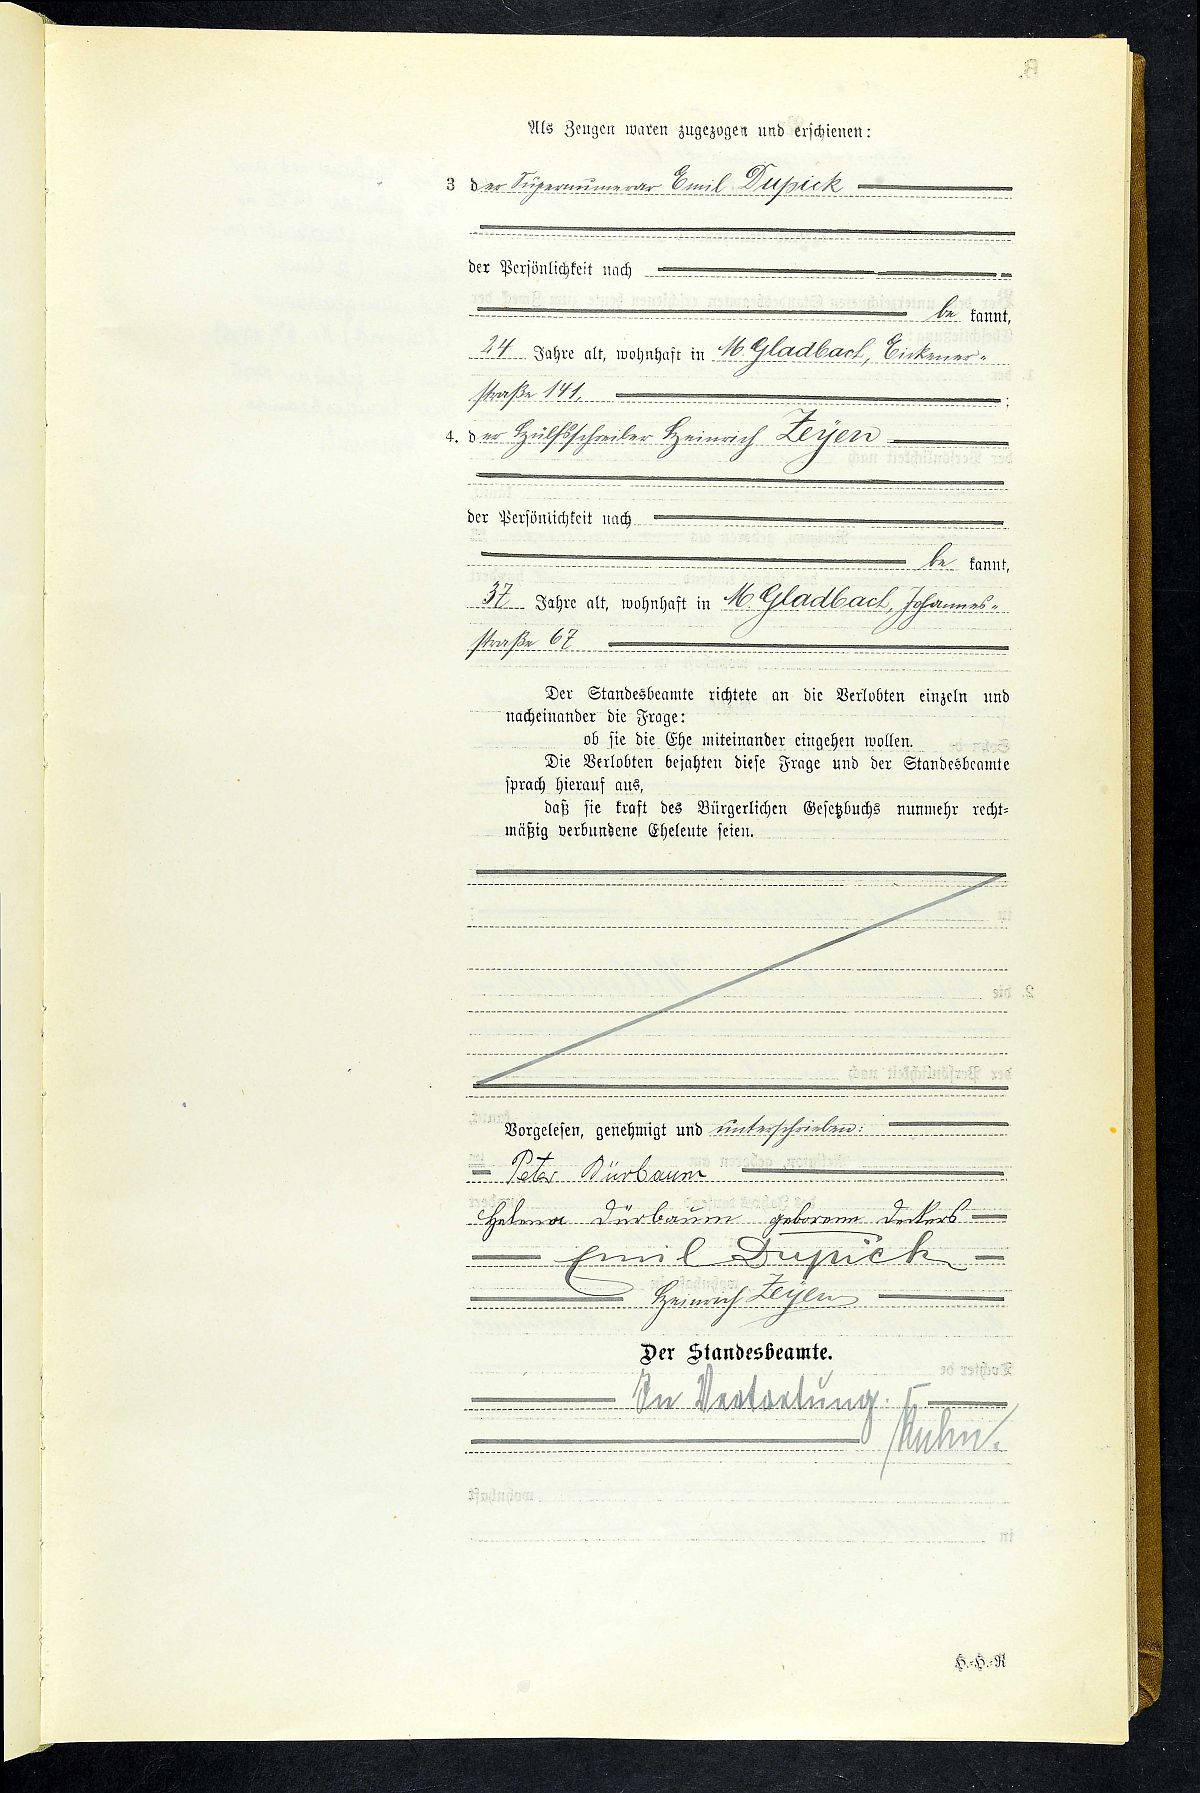 Als Zeugen waren zugezogen und erschienen:
3 der Supernumerar Emil Dupick
der Persönlichkeit nach
be kannt,
24 Jahre alt, wohnhaft in M. Gladbach, Eickener-
straße 141.;
4. der Hülfsschreiber Heinrich Zeÿen
der Persönlichkeit nach
be kannt,
37 Jahre alt, wohnhaft in M. Gladbach, Johannes-
straße 67
Der Standesbeamte richtete an die Verlobten einzeln und
nacheinander die Frage:
ob sie die Ehe miteinander eingehen wollen.
Die Verlobten bejahten diese Frage und der Standesbeamte
sprach hierauf aus,
daß sie kraft des Bürgerlichen Gesetzbuchs nunmehr recht-
mäßig verbundene Eheleute seien.
Vorgelesen, genehmigt und unterschrieben:
Peter Dürbaum
Helena Dürbaum geborene Deckers
Emil Dupick
Heinrich Zeÿen
Der Standesbeamte.
In Vertretung.
Kuhn.
H.-H.-R